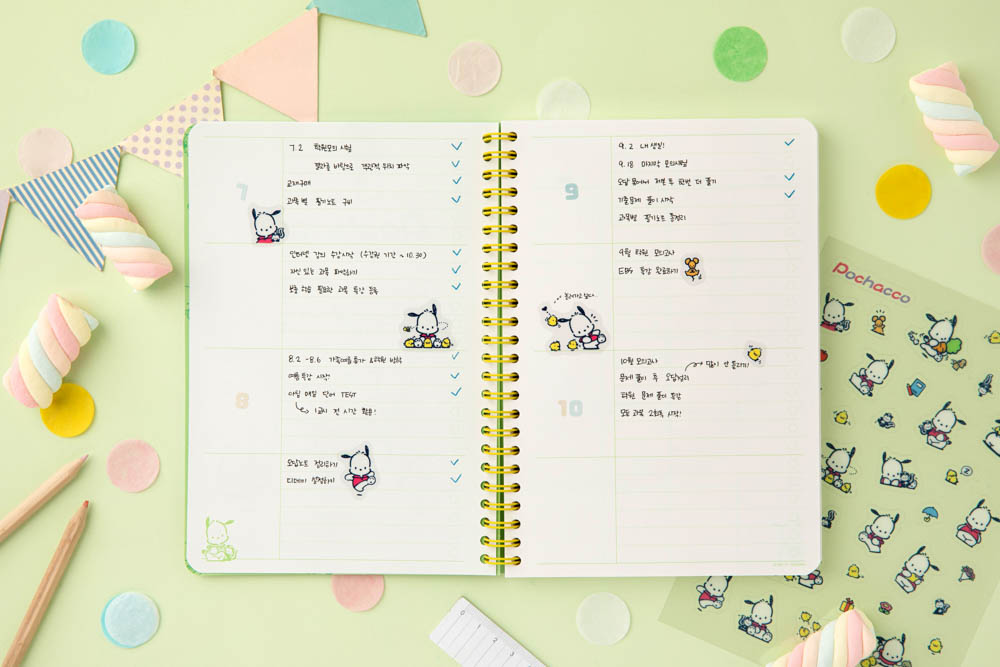 7
7.2 학원모의 시험
결과를 바탕으로 객관적 위치 파악
교재구매
과목별 필기노트 구비
인터넷 강의 수강시작 (수강권 기간 ~ 10.30)
자신 있는 과목 파악하기
보충 학습 필요한 과목 특강 등록
8
8.2 - 8.6 가족여름휴가 &학원 방학
여름특강 시작!
아침 매일 단어 TEST
1교시 전 시간 활용!
오답노트 정리하기
디데이 설정하기
9
9.2 내 생일!
9.18 마지막 모의시험
오답 문제에서 격주 후 한번 더 풀기
기출문제 풀이 시작
과목별 필기노트 총정리
9월 학원 모의고사
EBS 특강 완료하기
놀러가고 싶다..
10
10월 모의고사
문제 풀이 후 오답정리
학원 문제 풀이 특강
모든 과목 2회독 시작!
Pochacco
0 1 2 3